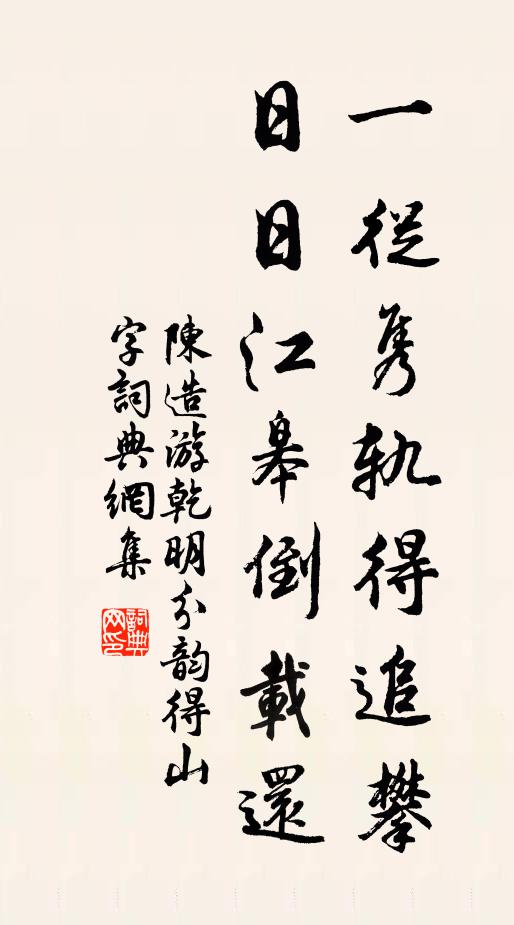 一從隽軌得追攀
日日江皋倒載還
陳造游乾明分韵得山
字詞典網集
詞典網印